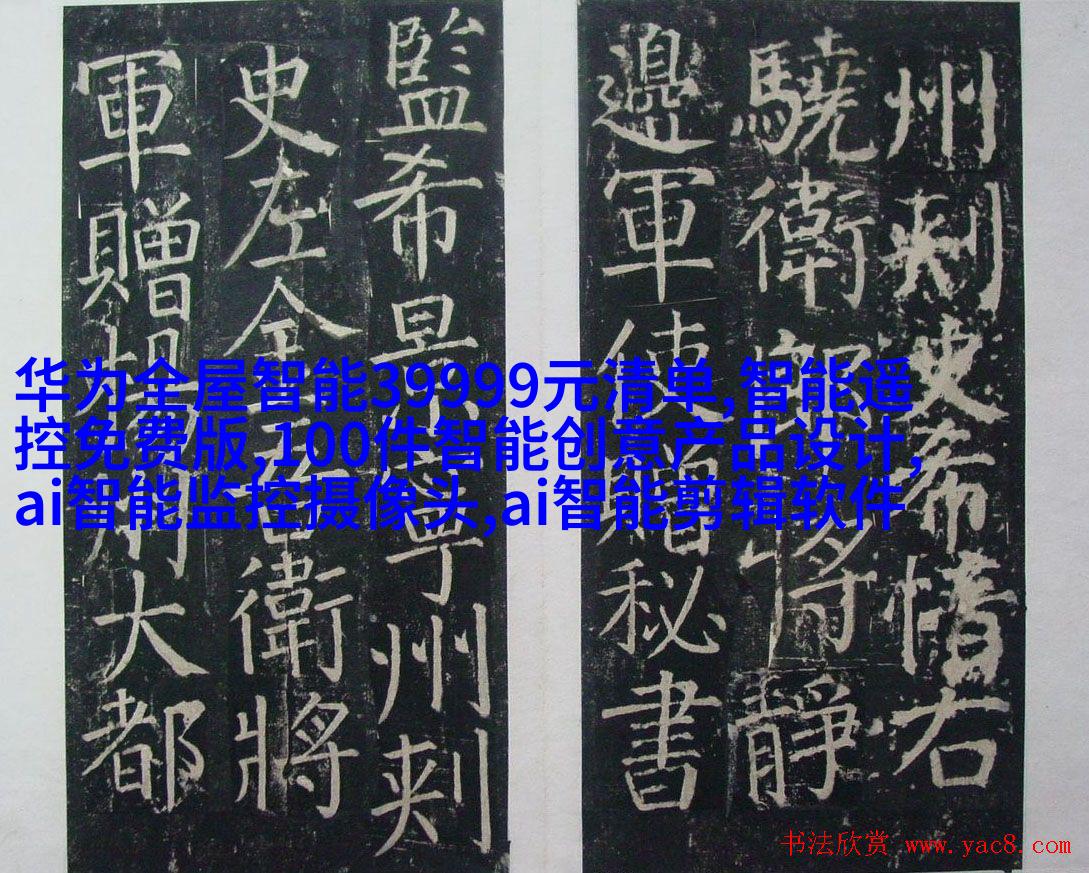 州刺史希右
驍衛將靜
邊軍使贈秘書
監希景寧州刺
史左金吾衛將
軍贈大都
华为全屋智能39999元清单,智能遥
控免费版,100件智能创意产品设计,
ai智能监控摄像头,ai智能剪辑软件
书法欣赏 www.yac8.com